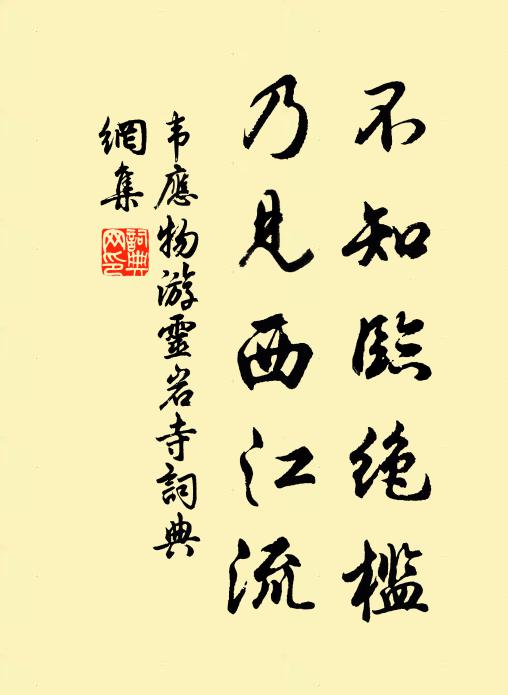 不知臨絶檻
乃見西江流
韦應物游靈岩寺詞典
網集
詞典網印